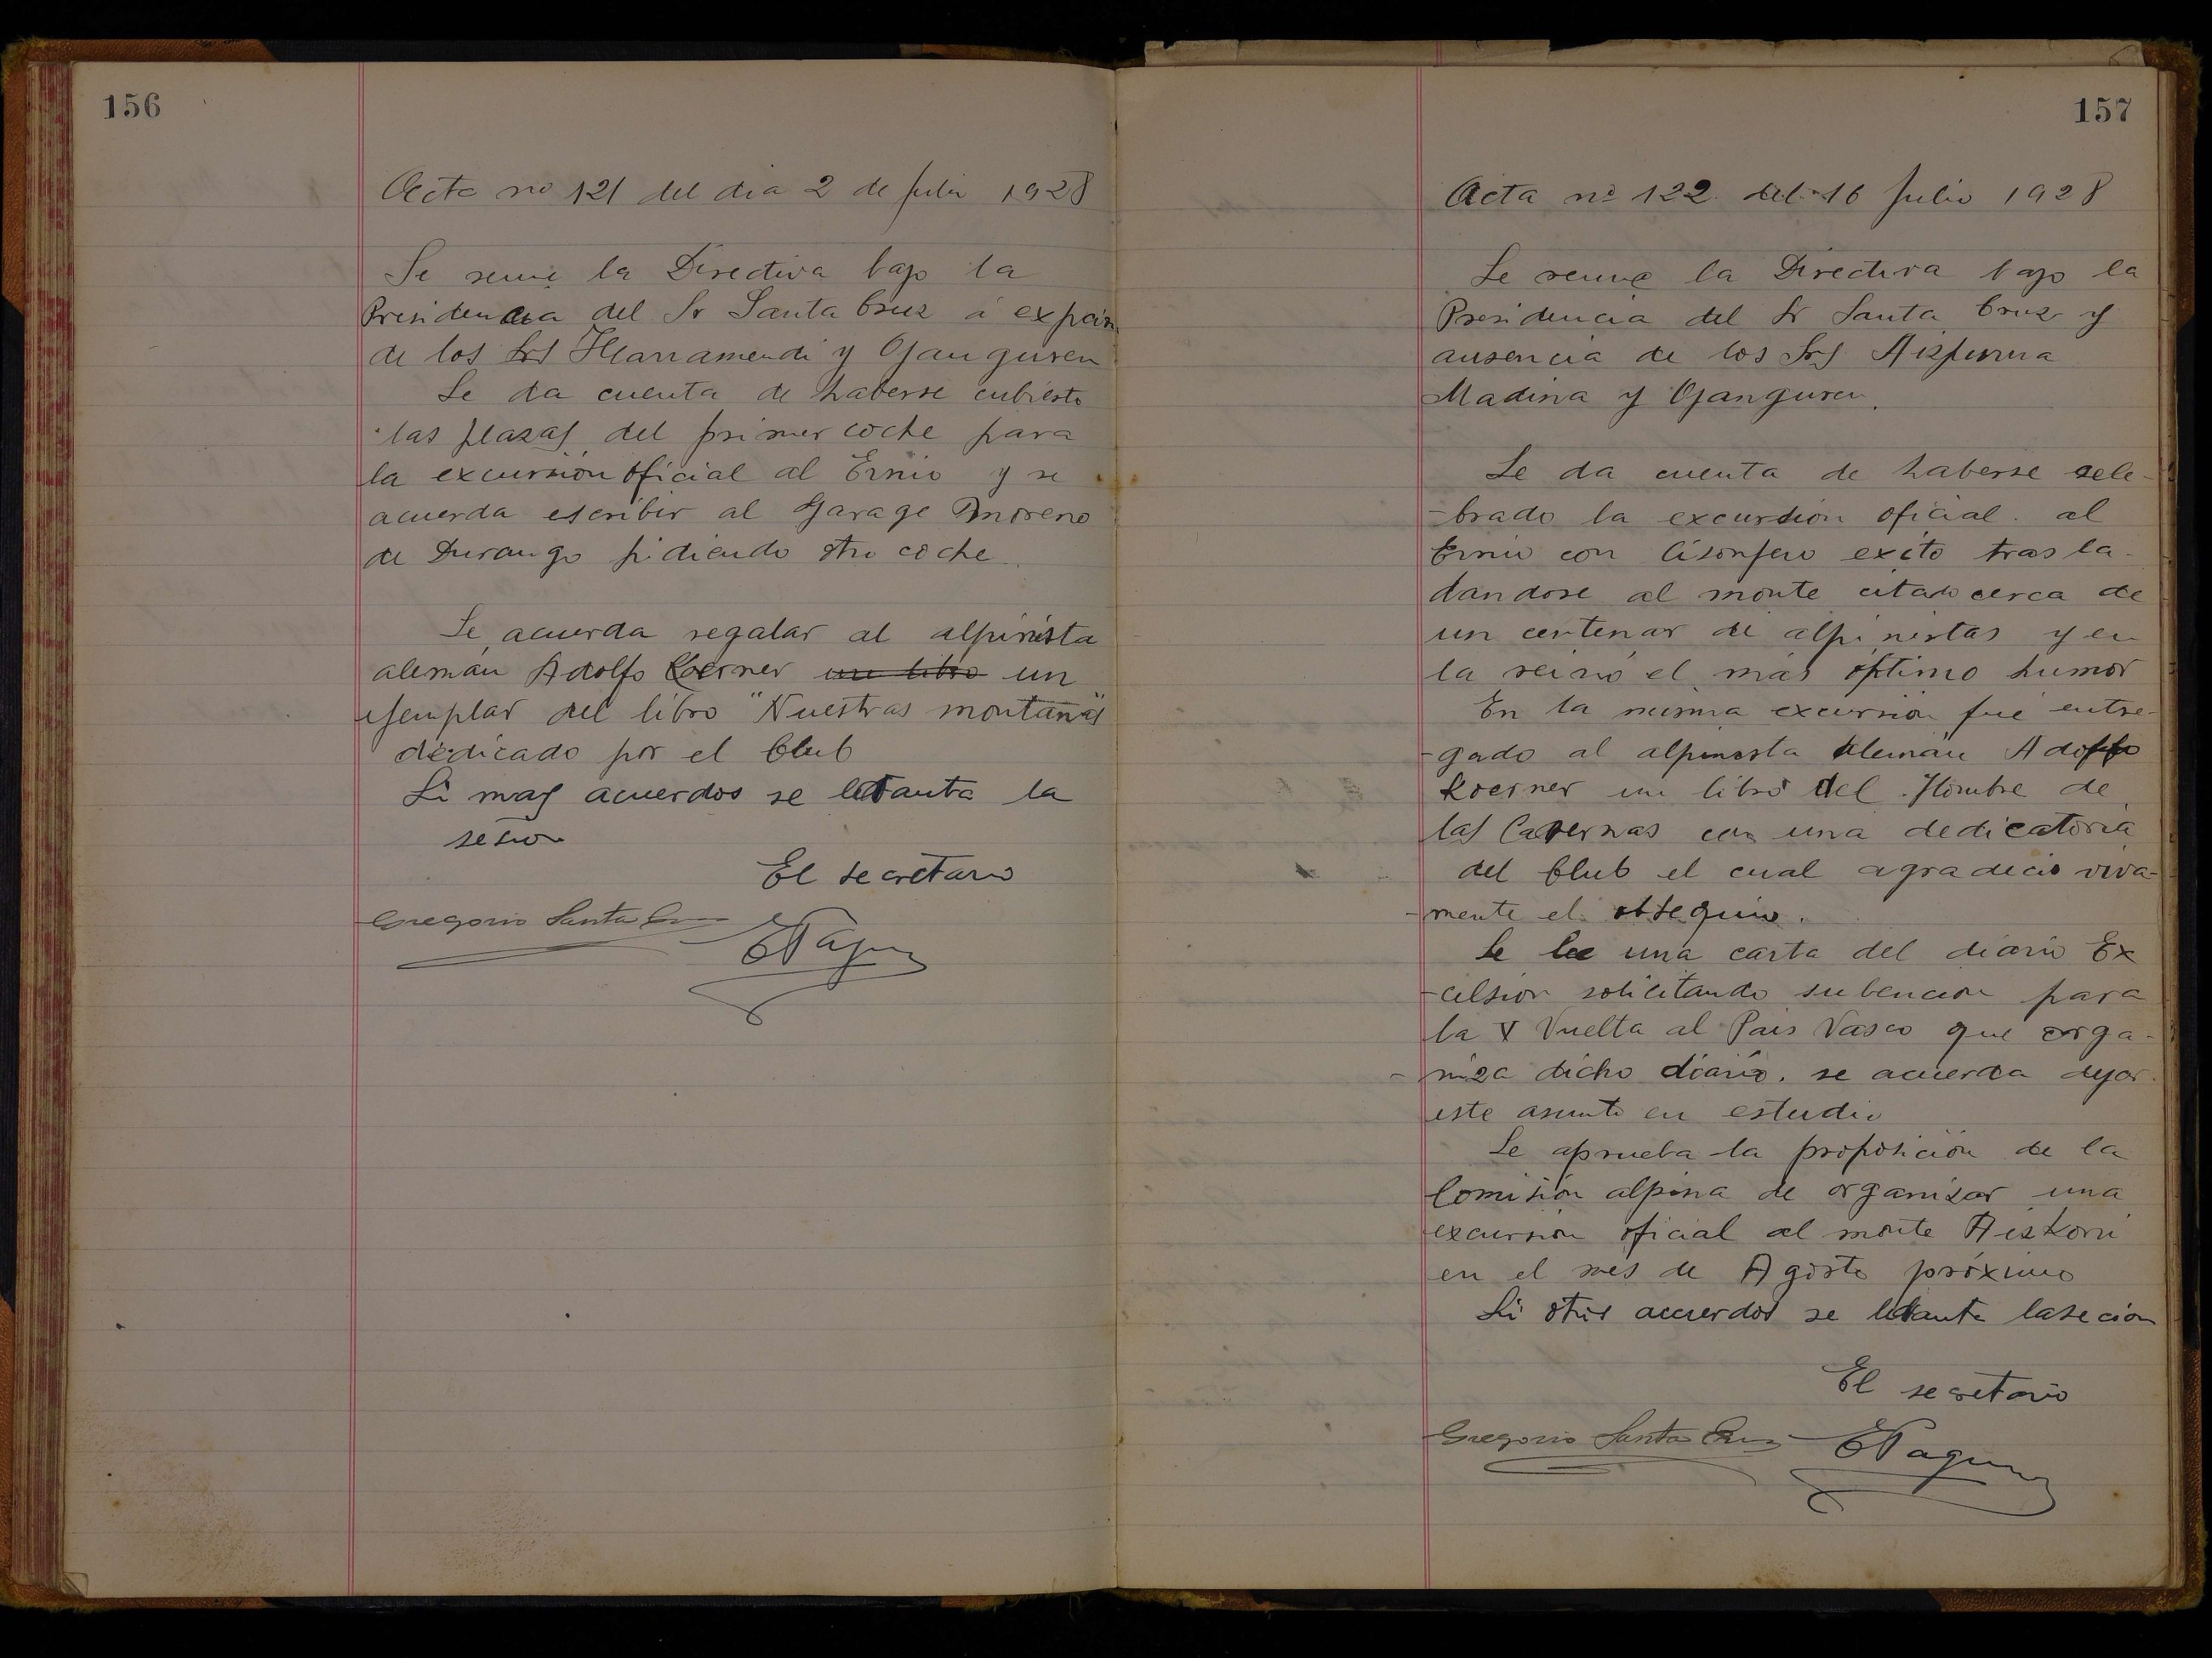 156
Acta no 121 del dia 2 de Julio 1928
Se reune la Directiva bajo la
Presidencia del Sr Santa Cruz á
de los Srs Ilarramendi y Ojanguren
Se da cuenta de haberse cubierto
las plazas del primer coche para
la excursión oficial al Ernio y se
acuerda escribir al Garage Moreno
de Durango pidiendo otro coche
Se acuerda regalar al alpinista
alemán Adolfo Koerner un libro un
ejemplar del libro "Nuestras montañas"
dedicado por el Club
Si mas acuerdos se lebanta la
sesion
El secretario
Gregorio Santa Cruz
157
Acta nº 122 del 16 Julio 1928
Se reune la Directiva bajo la
Presidencia del Sr Santa Cruz y
ausencia de los Srs Aizpurua
Madina y Ojanguren.
Se da cuenta de haberse cele-
-brado la excursion oficial al
Ernio con lisonjero exito trasla-
dandose al monte citado cerca de
un centenar de alpinistas y en
la reinó el más óptimo humor
En la misma excursión fué entre-
-gado al alpinista Alemán Adolfo
Koerner un libro del Hombre de
las Cavernas con una dedicatoria
del Club el cual agradeció viva-
-mente el obsequio.
Se lee una carta del diario Ex
-celsior solicitando subencion para
la V Vuelta al Pais Vasco que orga-
-niza dicho diario. se acuerda dejar
este asunto en estudio
Se aprueba la proposición de la
Comisión alpina de organizar una
excursion oficial al monte Aizkorri
en el mes de Agosto próximo
Si otros acuerdos se lebanta la secion
El secretario
Gregorio Santa Cruz